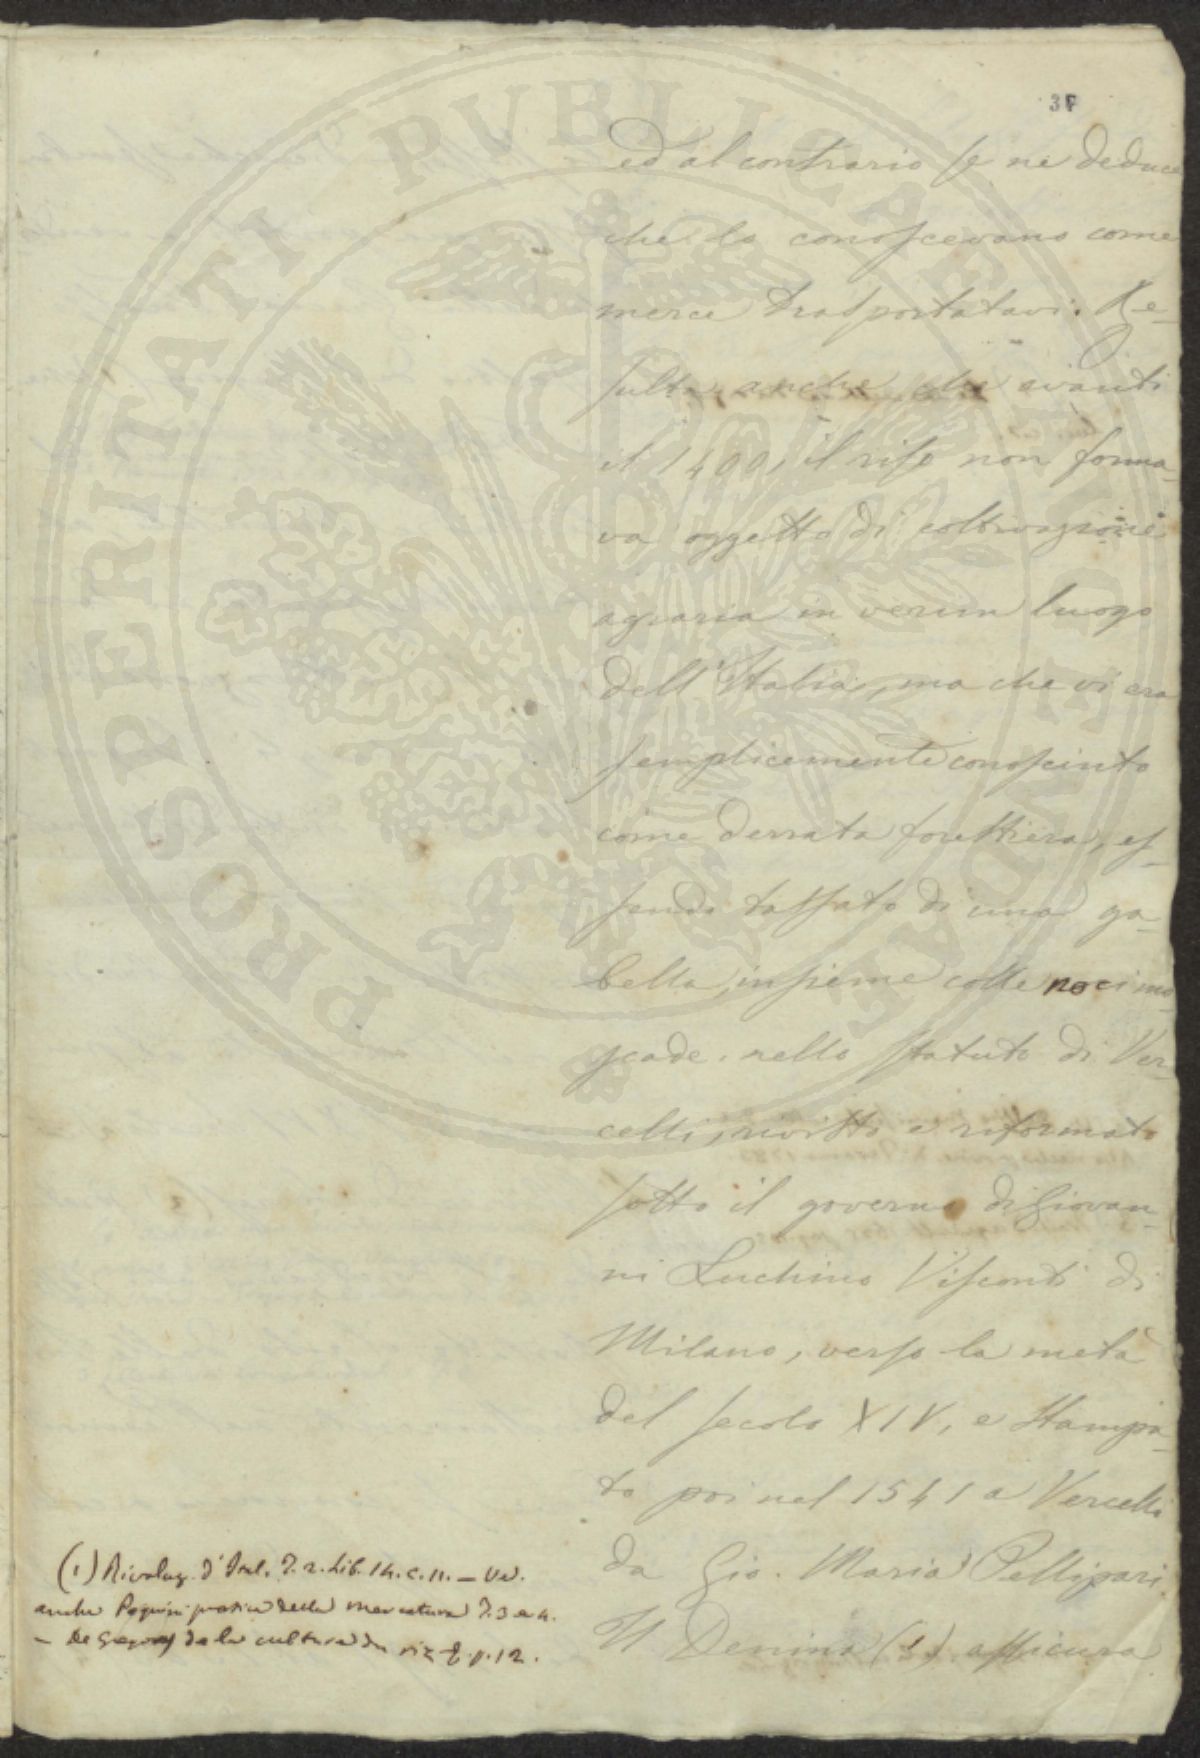 37
ed al contrario se ne deduce
che lo conoscevano come
merce trasportatavi. Re-
sulta anche che avanti
il 1400, il riso non forma-
va oggetto di coltivazione
agraria in verun luogo
dell'Italia, ma che vi era
semplicemente conosciuto
come derrata forestiera, es-
sendo tassato di una ga-
bella, insieme colle noci mo-
scade, nello statuto di Ver-
celli, rivisto e riformato
sotto il governo di Giovan-
ni Luchino Visconti di
Milano, verso la metà
del secolo XIV, e stampa-
to poi nel 1541 a Vercelli
da Gio. Maria Pellipari.
Il Denina (1) assicura
(1) Rivoluz. d'Ital. T. 2. Lib. 14. c. 11. — Ved.
anche Pagnini pratica della mercatura T. 3 e 4.
— De Gregory de la culture du riz p. 12.
PROSPERITATI PUBLICAE AUGENDAE